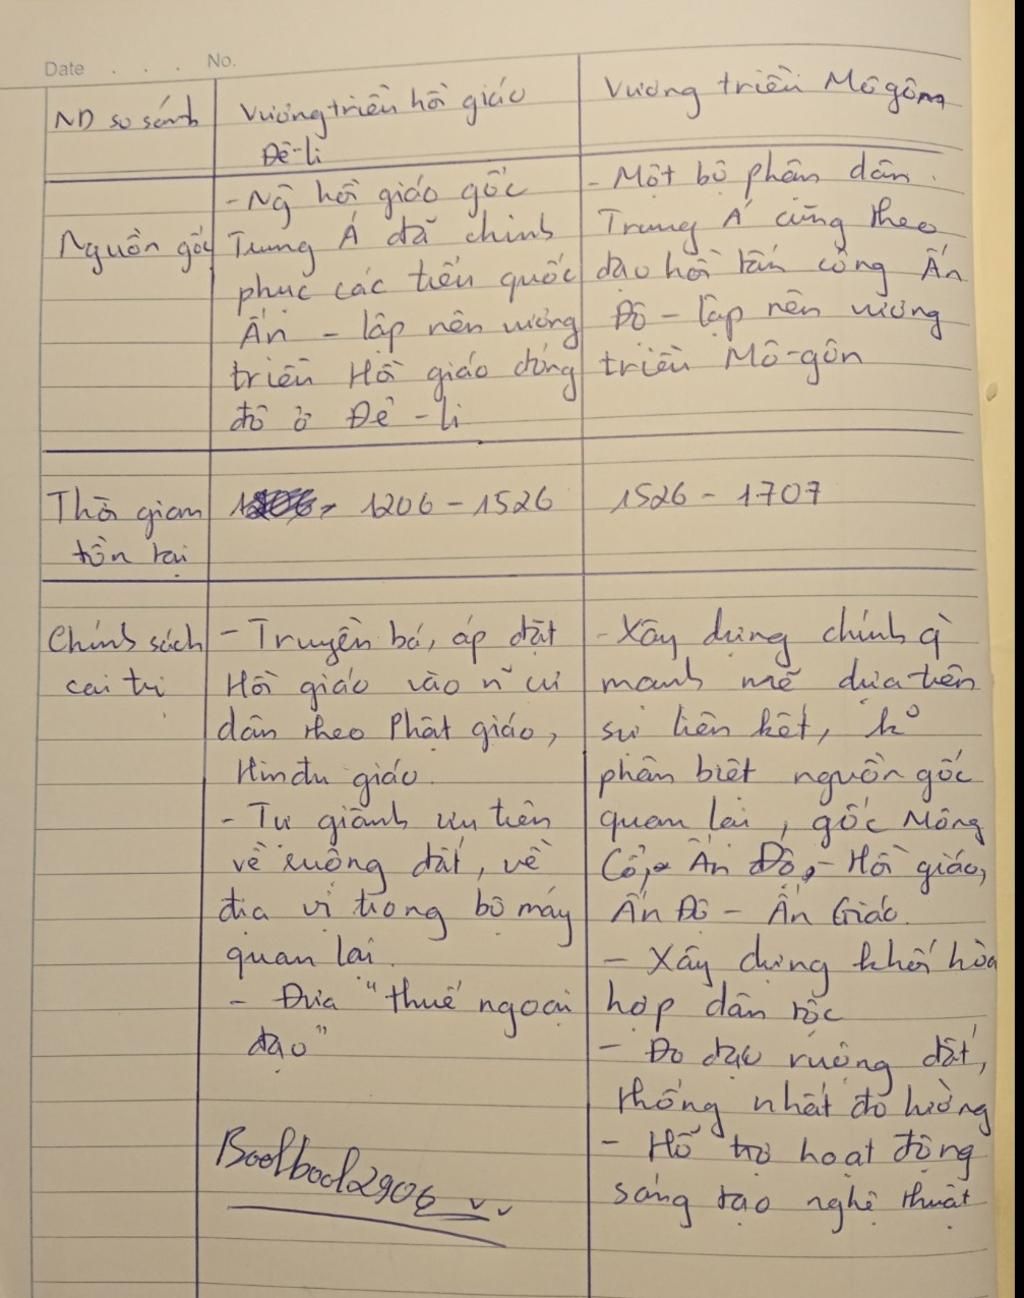 Date . . . No.
ND so sánh
Vương triều hồi giáo
Đê-li
Vương triều Môgôn
Nguồn gốc
- Ng hồi giáo gốc
Trung Á đã chinh
phục các tiểu quốc
Ấn - lập nên vương
triều Hồi giáo đóng
đô ở Đê-li
- Một bộ phận dân
Trung Á cũng theo
đạo hồi tấn công Ấn
Độ - lập nên vương
triều Mô-gôn
Thời gian
tồn tại
1206 - 1526
1526 - 1707
Chính sách
cai trị
- Truyền bá, áp đặt
Hồi giáo vào cư
dân theo Phật giáo,
Hinđu giáo.
- Tự giành ưu tiên
về ruộng đất, về
địa vị trong bộ máy
quan lại.
- Đưa "thuế ngoại
đạo"
- Xây dựng chính q
mạnh mẽ dựa trên
sự liên kết, k°
phân biệt nguồn gốc
quan lại, gốc Mông
Cổ, Ấn Độ - Hồi giáo,
Ấn Độ - Ấn Giáo.
- Xây dựng khối hòa
hợp dân tộc
- Đo đạc ruộng đất,
thống nhất đo lường
- Hỗ trợ hoạt động
sáng tạo nghệ thuật
Boolbool2906